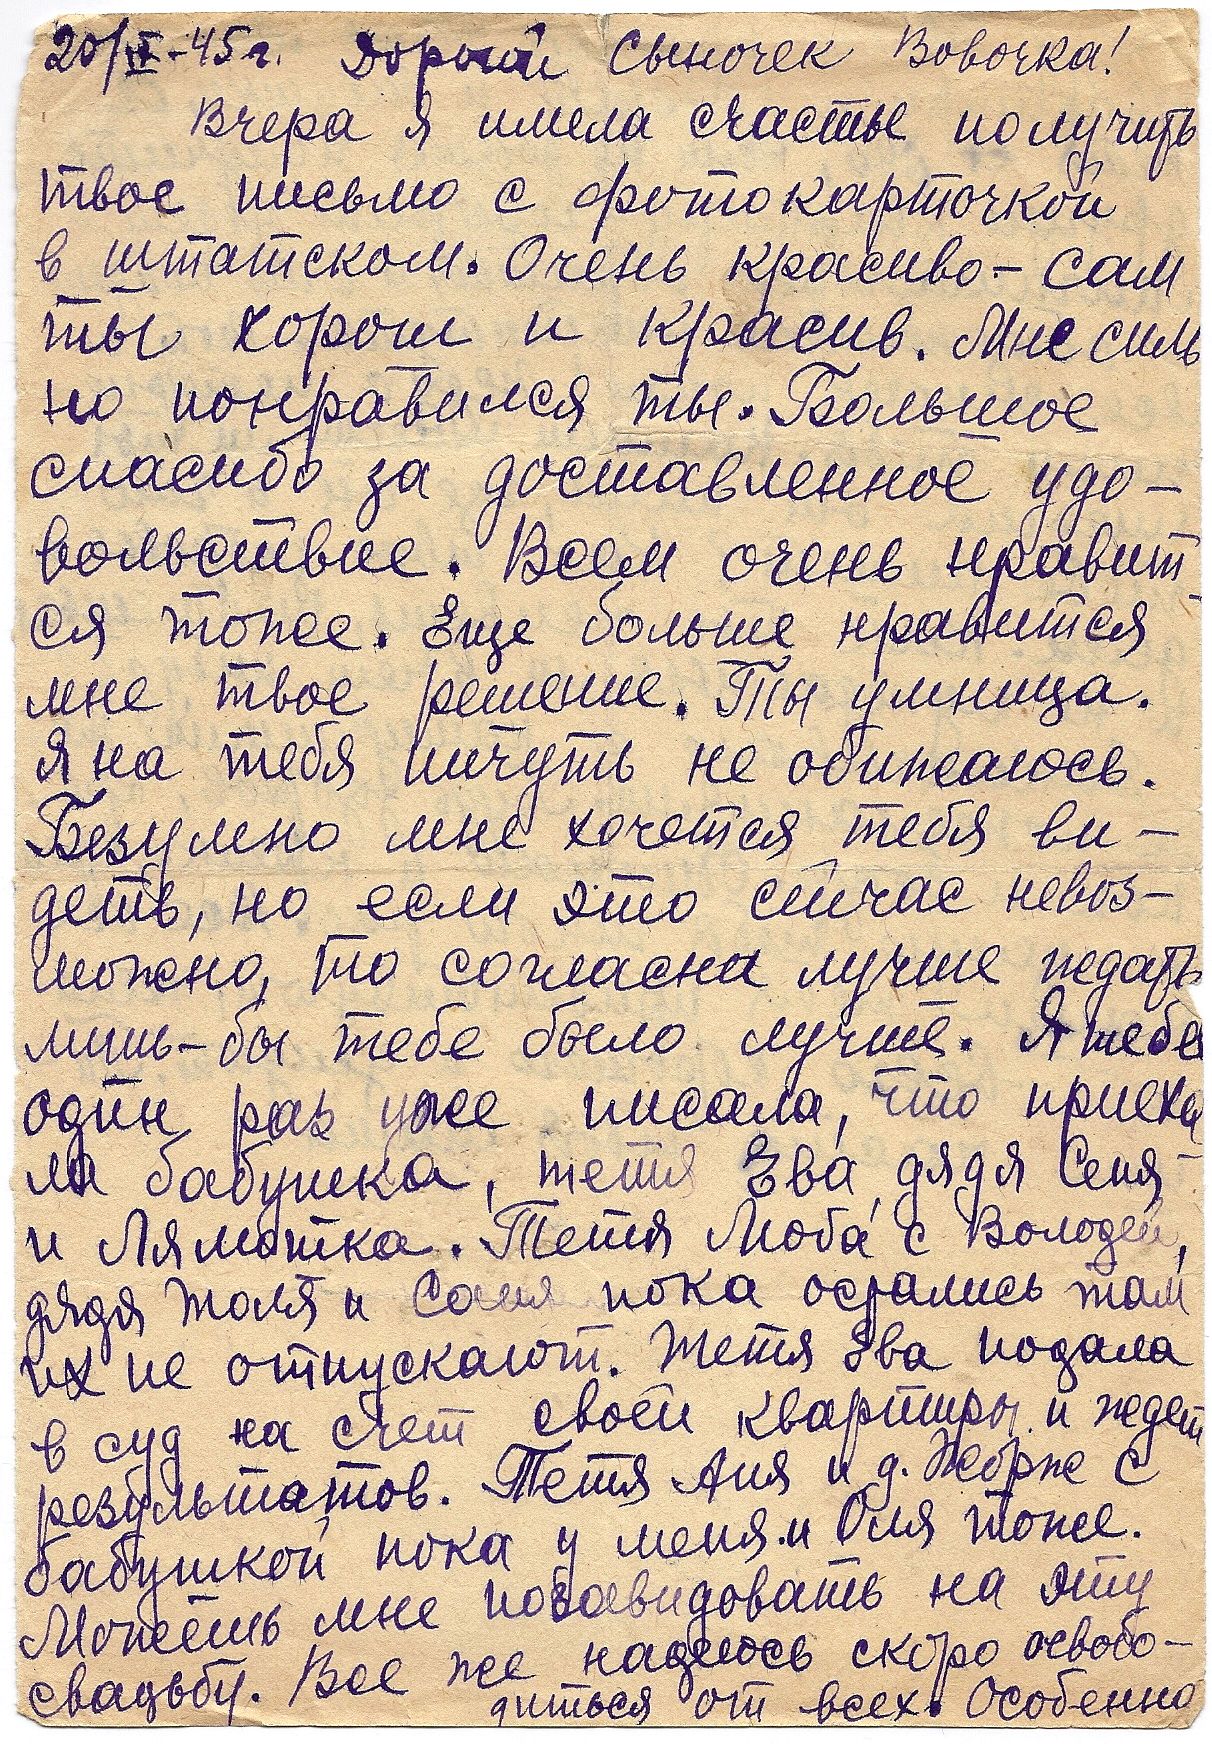 20/X-45 г. Дорогой Сыночек Вовочка!
Вчера я имела счастье получить
твое письмо с фотокарточкой
в штатском. Очень красиво – сам
ты хорош и красив. Мне силь
но понравился ты. Большое
спасибо за доставленное удо-
вольствие. Всем очень нравит
ся тоже. Еще больше нравится
мне твое решение. Ты умница.
Я на тебя ничуть не обижаюсь.
Безумно мне хочется тебя ви-
деть, но если это сейчас невоз-
можно, то согласна лучше ждать
лишь-бы тебе было лучше. Я тебе
один раз уже писала, что приеха
ли бабушка, тетя Ева, дядя Сеня
и Лямотка. Тетя Люба с Володей,
дядя Толя и Соня пока остались там
их не отпускают. Тетя Ева подала
в суд на счет своей квартиры и ждет
результатов. Тетя Аня и д. Жорж с
бабушкой пока у меня и Оля тоже.
Можешь мне позавидовать на эту
свадьбу. Все же надеюсь скоро освобо-
диться от всех. Особенно